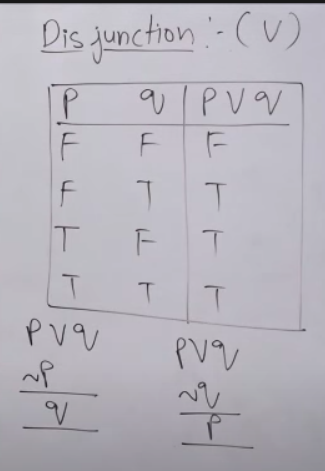 Disjunction :- (V)
P q P V q
F F F
F T T
T F T
T T T
P V q
~P
q
P V q
~q
P